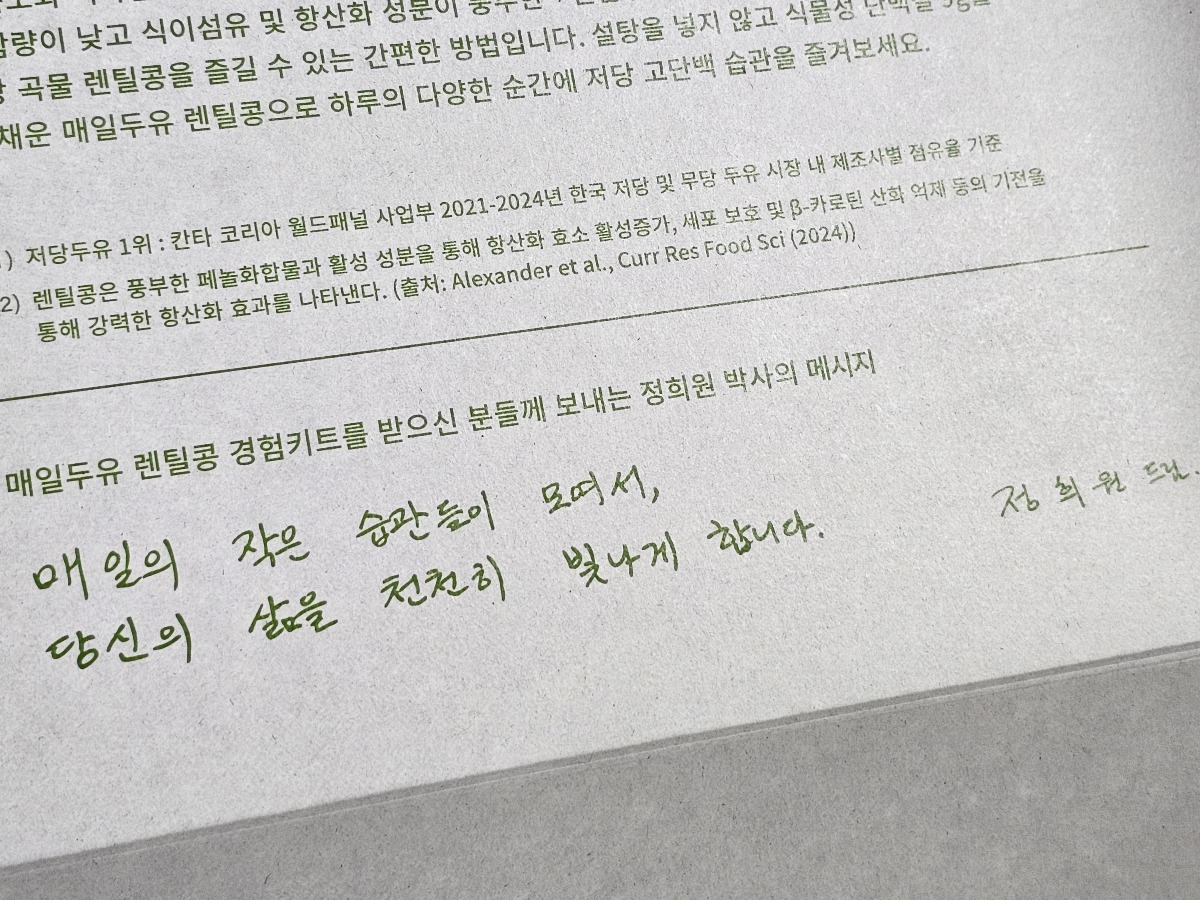 함량이 낮고 식이섬유 및 항산화 성분이
곡물 렌틸콩을 즐길 수 있는 간편한 방법입니다. 설탕을 넣지 않고 식물성 단백질
채운 매일두유 렌틸콩으로 하루의 다양한 순간에 저당 고단백 습관을 즐겨보세요.
저당두유 1위 : 칸타 코리아 월드패널 사업부 2021-2024년 한국 저당 및 무당 두유 시장 내 제조사별 점유율 기준
2) 렌틸콩은 풍부한 페놀화합물과 활성 성분을 통해 항산화 효소 활성증가, 세포 보호 및 β-카로틴 산화 억제 등의 기전을
통해 강력한 항산화 효과를 나타낸다. (출처: Alexander et al., Curr Res Food Sci (2024))
매일두유 렌틸콩 경험키트를 받으신 분들께 보내는 정희원 박사의 메시지
매일의 작은 습관들이 모여서,
당신의 삶을 천천히 빛나게 합니다.
정희원 드림.